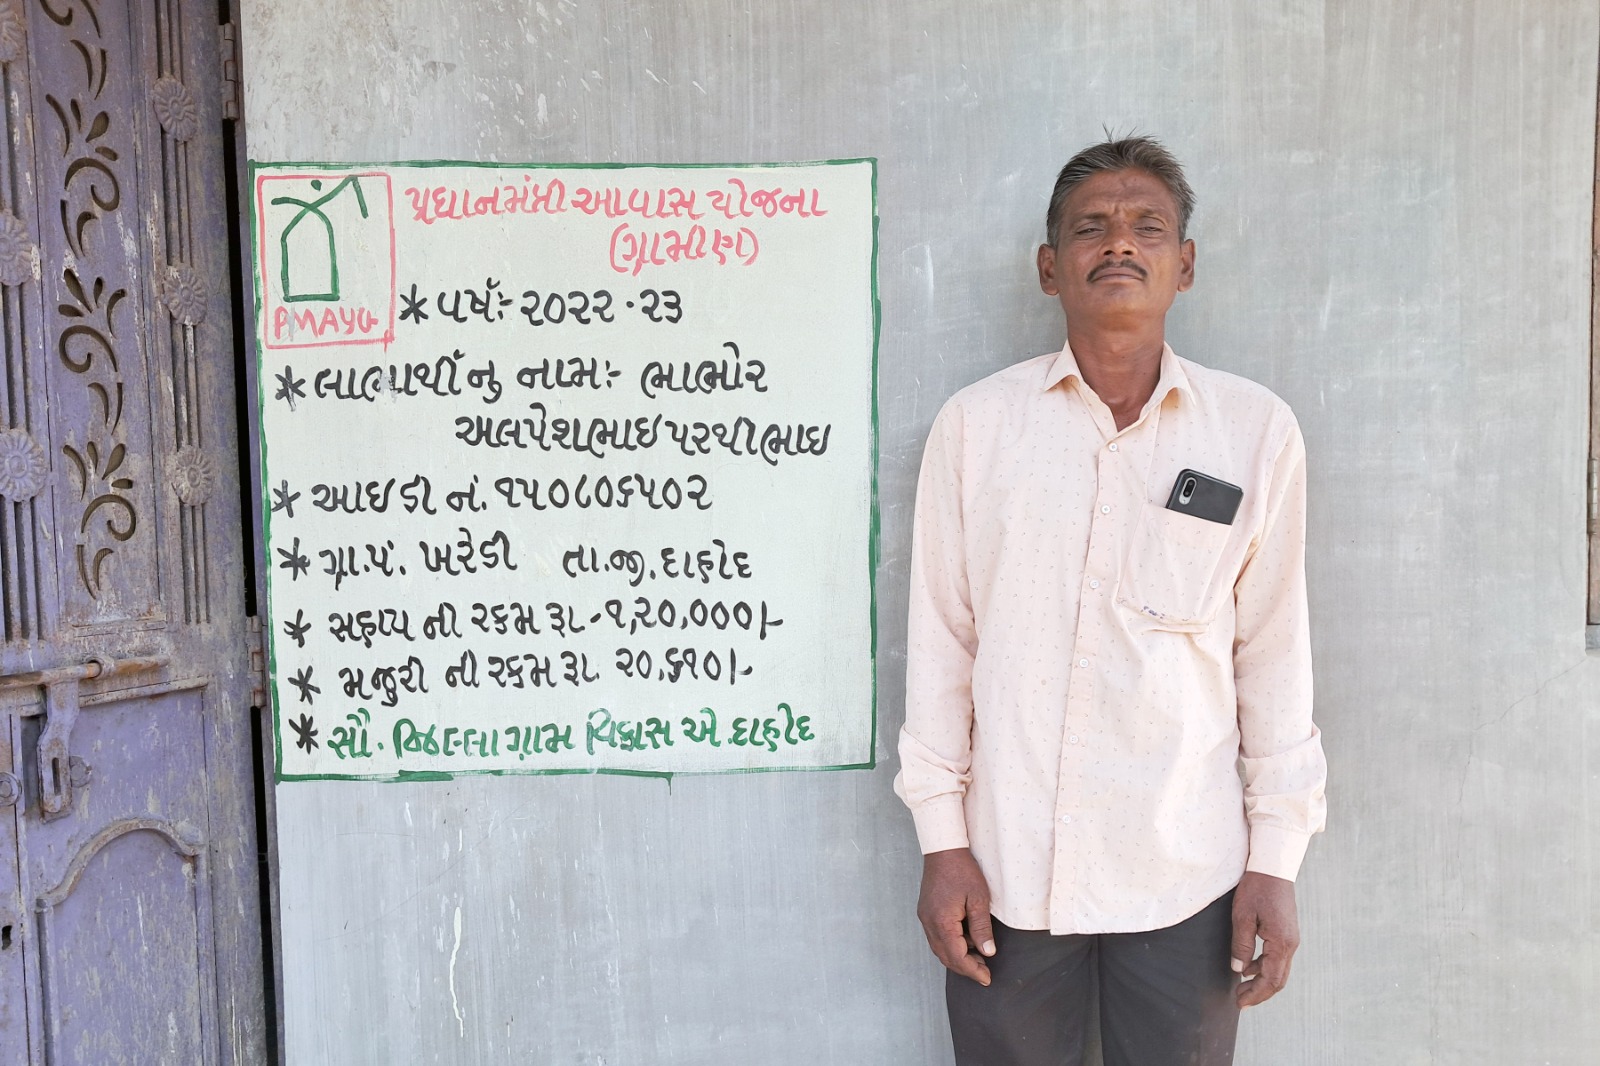 પ્રધાનમંત્રી આવાસ યોજના
(ગ્રામીણ)
PMAYG
* વર્ષઃ- ૨૦૨૨-૨૩
* લાભાર્થી નુ નામઃ- ભાભોર
અલપેશભાઇ પરથીભાઇ
* આઇ ડી નં. ૧૫૦૮૦૬૫૦૨
* ગ્રા.પં. ખરેડી તા.જી. દાહોદ
* સહાય ની રકમ રૂા.-૧,૨૦,૦૦૦/-
* મજુરી ની રકમ રૂા. ૨૦,૬૧૦/-
* સૌ. જિલ્લા ગ્રામ વિકાસ એ. દાહોદ